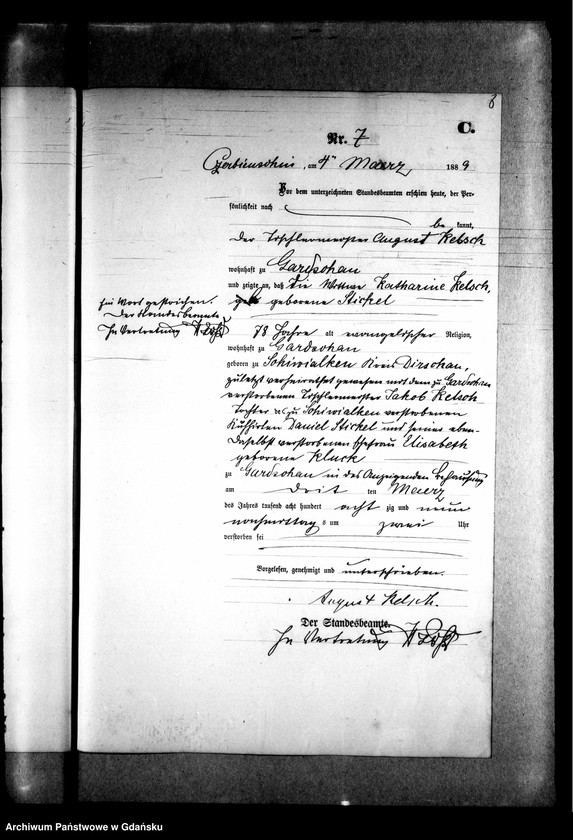 8
C.
Nr. 7
am 4ten Maerz 1889
Vor dem unterzeichneten Standesbeamten erschien heute, der Per-
sönlichkeit nach
be kannt,
der Tischlermeister August Kelsch
wohnhaft zu Gardschau
und zeigte an, daß die Wittwe Katharine Kelsch,
geborene Stickel
Ein Wort gestrichen.
Der Standesbeamte
In Vertretung
78 Jahre alt evangelischer Religion,
wohnhaft zu Gardschau
geboren zu Schiwialken Kreis Dirschau,
zuletzt verheirathet gewesen mit dem zu Gardschau
verstorbenen Tischlermeister Jakob Kelsch
Tochter des zu Schiwialken verstorbenen
Kuhhirten Daniel Stickel und seiner eben-
daselbst verstorbenen Ehefrau Elisabeth
geborene Kluck
zu Gardschau in des Anzeigenden Behausung
am drit ten Maerz
des Jahres tausend acht hundert acht zig und neun
nachmittags um zwei Uhr
verstorben sei
Vorgelesen, genehmigt und unterschrieben.
August Kelsch.
Der Standesbeamte.
In Vertretung
Archiwum Państwowe w Gdańsku